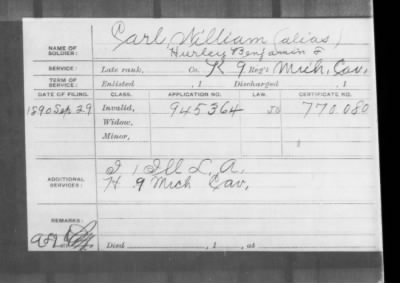 Carl, William (alias)
NAME OF SOLDIER: Hurley Benjamin F
SERVICE: Late rank, Co. K 9 Reg't Mich. Cav.
TERM OF SERVICE: Enlisted , 1 Discharged , 1
DATE OF FILING. CLASS. APPLICATION NO. LAW. CERTIFICATE NO.
1890 Sep. 29 Invalid, 945364 770.080
Widow,
Minor,
ADDITIONAL SERVICES: I, 1 Ill L. A.
H. 9 Mich Cav.
REMARKS:
Died , 1 , at